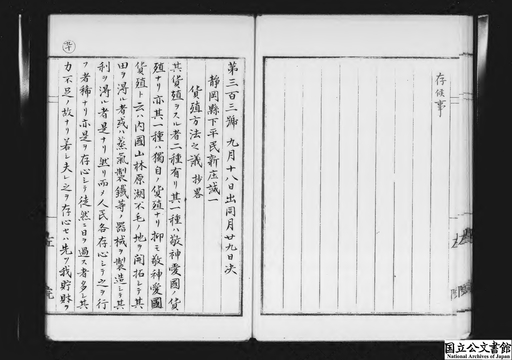 存候事
第三百三號 九月十八日出同月廿九日決
靜岡縣下平民新庄誠一
貨殖方法之議 抄略
其貨殖ヲスル者二種有リ其一種ハ敬神愛國ノ貨
殖ナリ亦其一種ハ獨自ノ貨殖ナリ抑モ敬神愛國
貨殖ト云ハ內國山林原湖不毛ノ地ヲ開拓シテ其
田ヲ淂ル者或ハ蒸氣製鐵等ノ器械ヲ製造シテ其
利ヲ淂ル者是ナリ然リ而メ人民各存心シテ之ヲ行
フ者稀ナリ亦是ヲ存心シテ徒然ニ日ヲ過ス者多シ其
力不足ノ故ナリ若シ夫レ之ヲ存心セハ先ツ我貯財ヲ
国立公文書館
National Archives of Japan